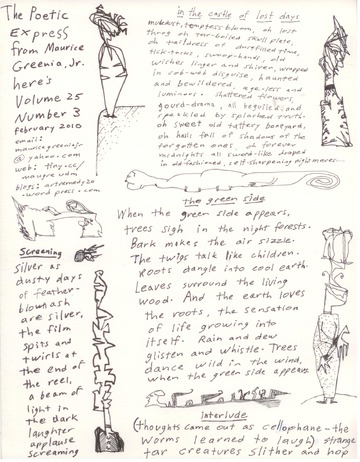 The Poetic
Express
from Maurice
Greenia, Jr.
here's
Volume 25
Number 3
february 2010
email:
mauricegreeniajr
@yahoo.com
web: tiny.cc/
maugre udm
blogs: artremedy20
.wordpress.com
Screening
Silver as
dusty days
of feather-
blown ash
are silver,
the film
spits and
twirls at
the end of
the reel,
a beam of
light in
the dark
laughter
applause
screaming
in the castle of lost days
bloom, oh lost
oh taildress of unrefilled time,
old
wishes linger and shiver, wrapped
in cob-web disguise, haunted
and bewildered, age-less and
luminous. shattered flowers,
gourd-drama, all beguiled and
speckled by splashed truth.
oh sweet old tattery boneyard,
oh hells fall of shadows of the
forgotten ones, oh forever
midnights all sword-like, draped
in old fashioned, self-sharpening nightmares...
the green side
When the green side appears,
trees sigh in the night forests.
Bark makes the air sizzle.
The twigs talk like children.
Roots dangle into cool earth.
Leaves surround the living
wood. And the earth loves
the roots, the sensation
of life growing into
itself. Rain and dew
glisten and whistle. Trees
dance wild in the wind,
when the green side appears
interlude
(thoughts came out as cellophane - the
worms learned to laugh) strange
tar creatures slither and hop